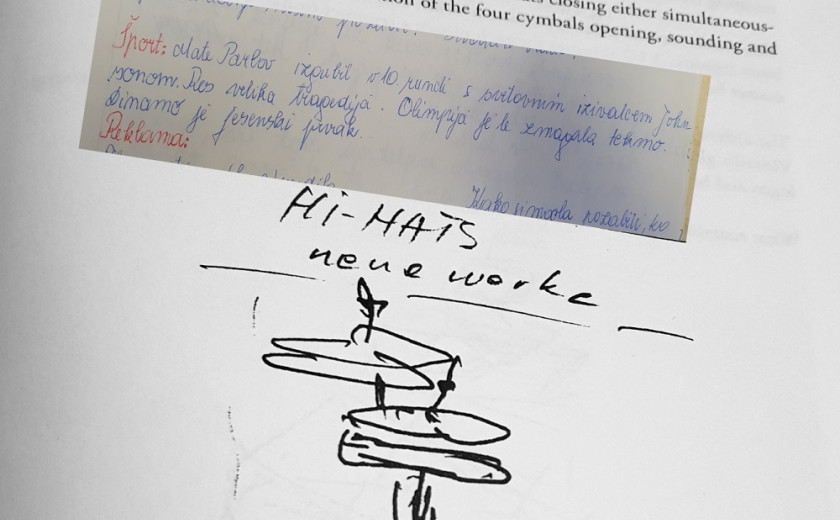 closing either simultaneous-
of the four cymbals opening, sounding and
Šport: Mate Parlov izgubil v 10 rundi s svetovnim izivalcem John
sonom. Res velika tragedija. Olimpija je le zmagala tekmo.
Dinamo je jesenski prvak.
Reklama:
pozabili, ko
HI-HATS
neue worke